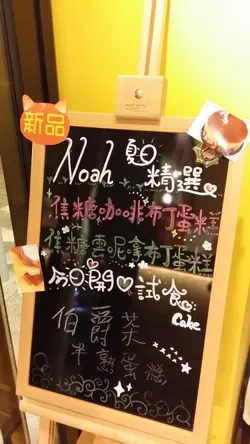 新品
Noah 夏日
精選
焦糖咖啡布丁蛋糕
焦糖雲呢拿布丁蛋糕
今日開心試食
Cake
伯爵茶
半熟蛋糕